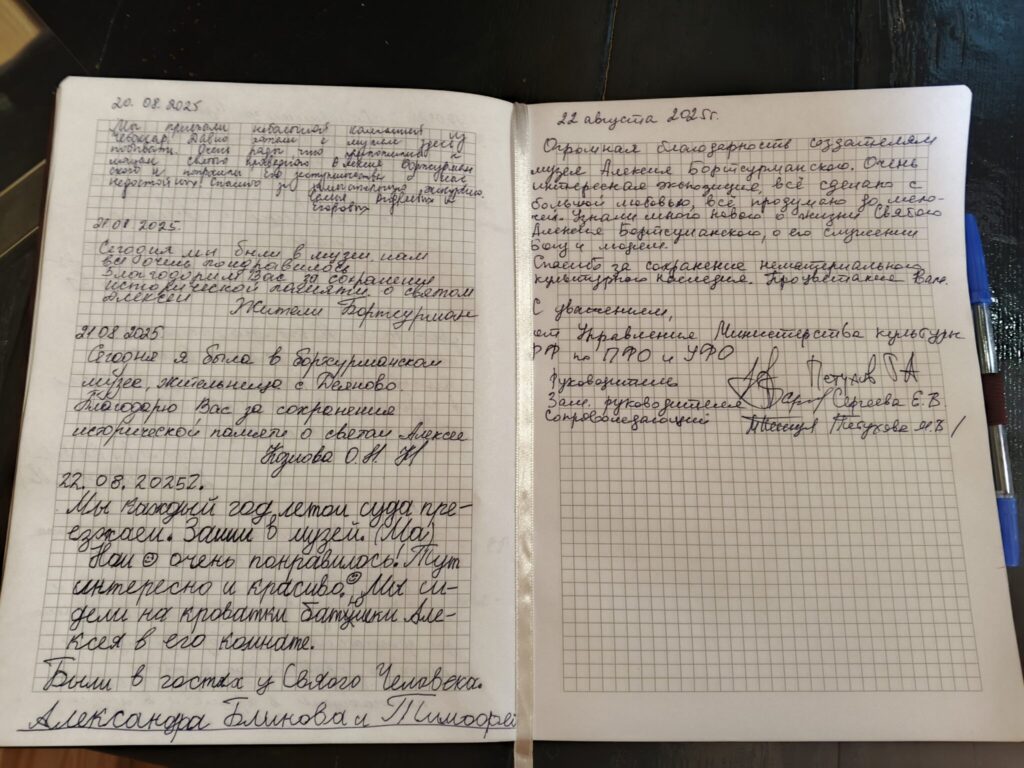 20.08.2025
Мы приехали небольшой компанией из
Чебоксар. Давно хотели в музее здесь
побывать. Очень рады что приложились к
мощам святого праведного Алексия Бортсурман-
ского и попросили его заступничества о нас
недостойных. Спасибо за замечательную экскурсию.
Семья
21.08.2025.
Сегодня мы были в музеи, нам
всё очень понравилось
Благодорим Вас за сохранения
исторической памяти о святом
Алексеи
Жители Бортсурман
21.08.2025
Сегодня я была в бортсурманском
музее, жительница с Деяново
Благодарю Вас за сохранения
исторической памяти о святом Алексее
Козлова О.Н.
22.08.2025г.
Мы каждый год летом суда пре-
езжаем. Зашли в музей. (Ма)
Нам очень понравилось! Тут
интересно и красиво. Мы си-
дели на кроватки батюшки Але-
ксея в его комнате.
Были в гостях у Святого Человека.
Александра Блинова и Тимофей
22 августа 2025г.
Огромная благодарность создателям
музея Алексия Бортсурманского. Очень
интересная экспозиция, всё сделано с
большой любовью, всё продумано до мело-
чей. Узнали много нового о жизни Святого
Алексия Бортсурманского, о его служении
Богу и людям.
Спасибо за сохранение нематериального
культурного наследия. Процветания Вам.
С уважением,
от Управления Министерства культуры
РФ по ПФО и УФО
Руководитель Петухов Г А
Зам. руководителя Сергеева Е.В
Сопровождающий Петухова М.В/